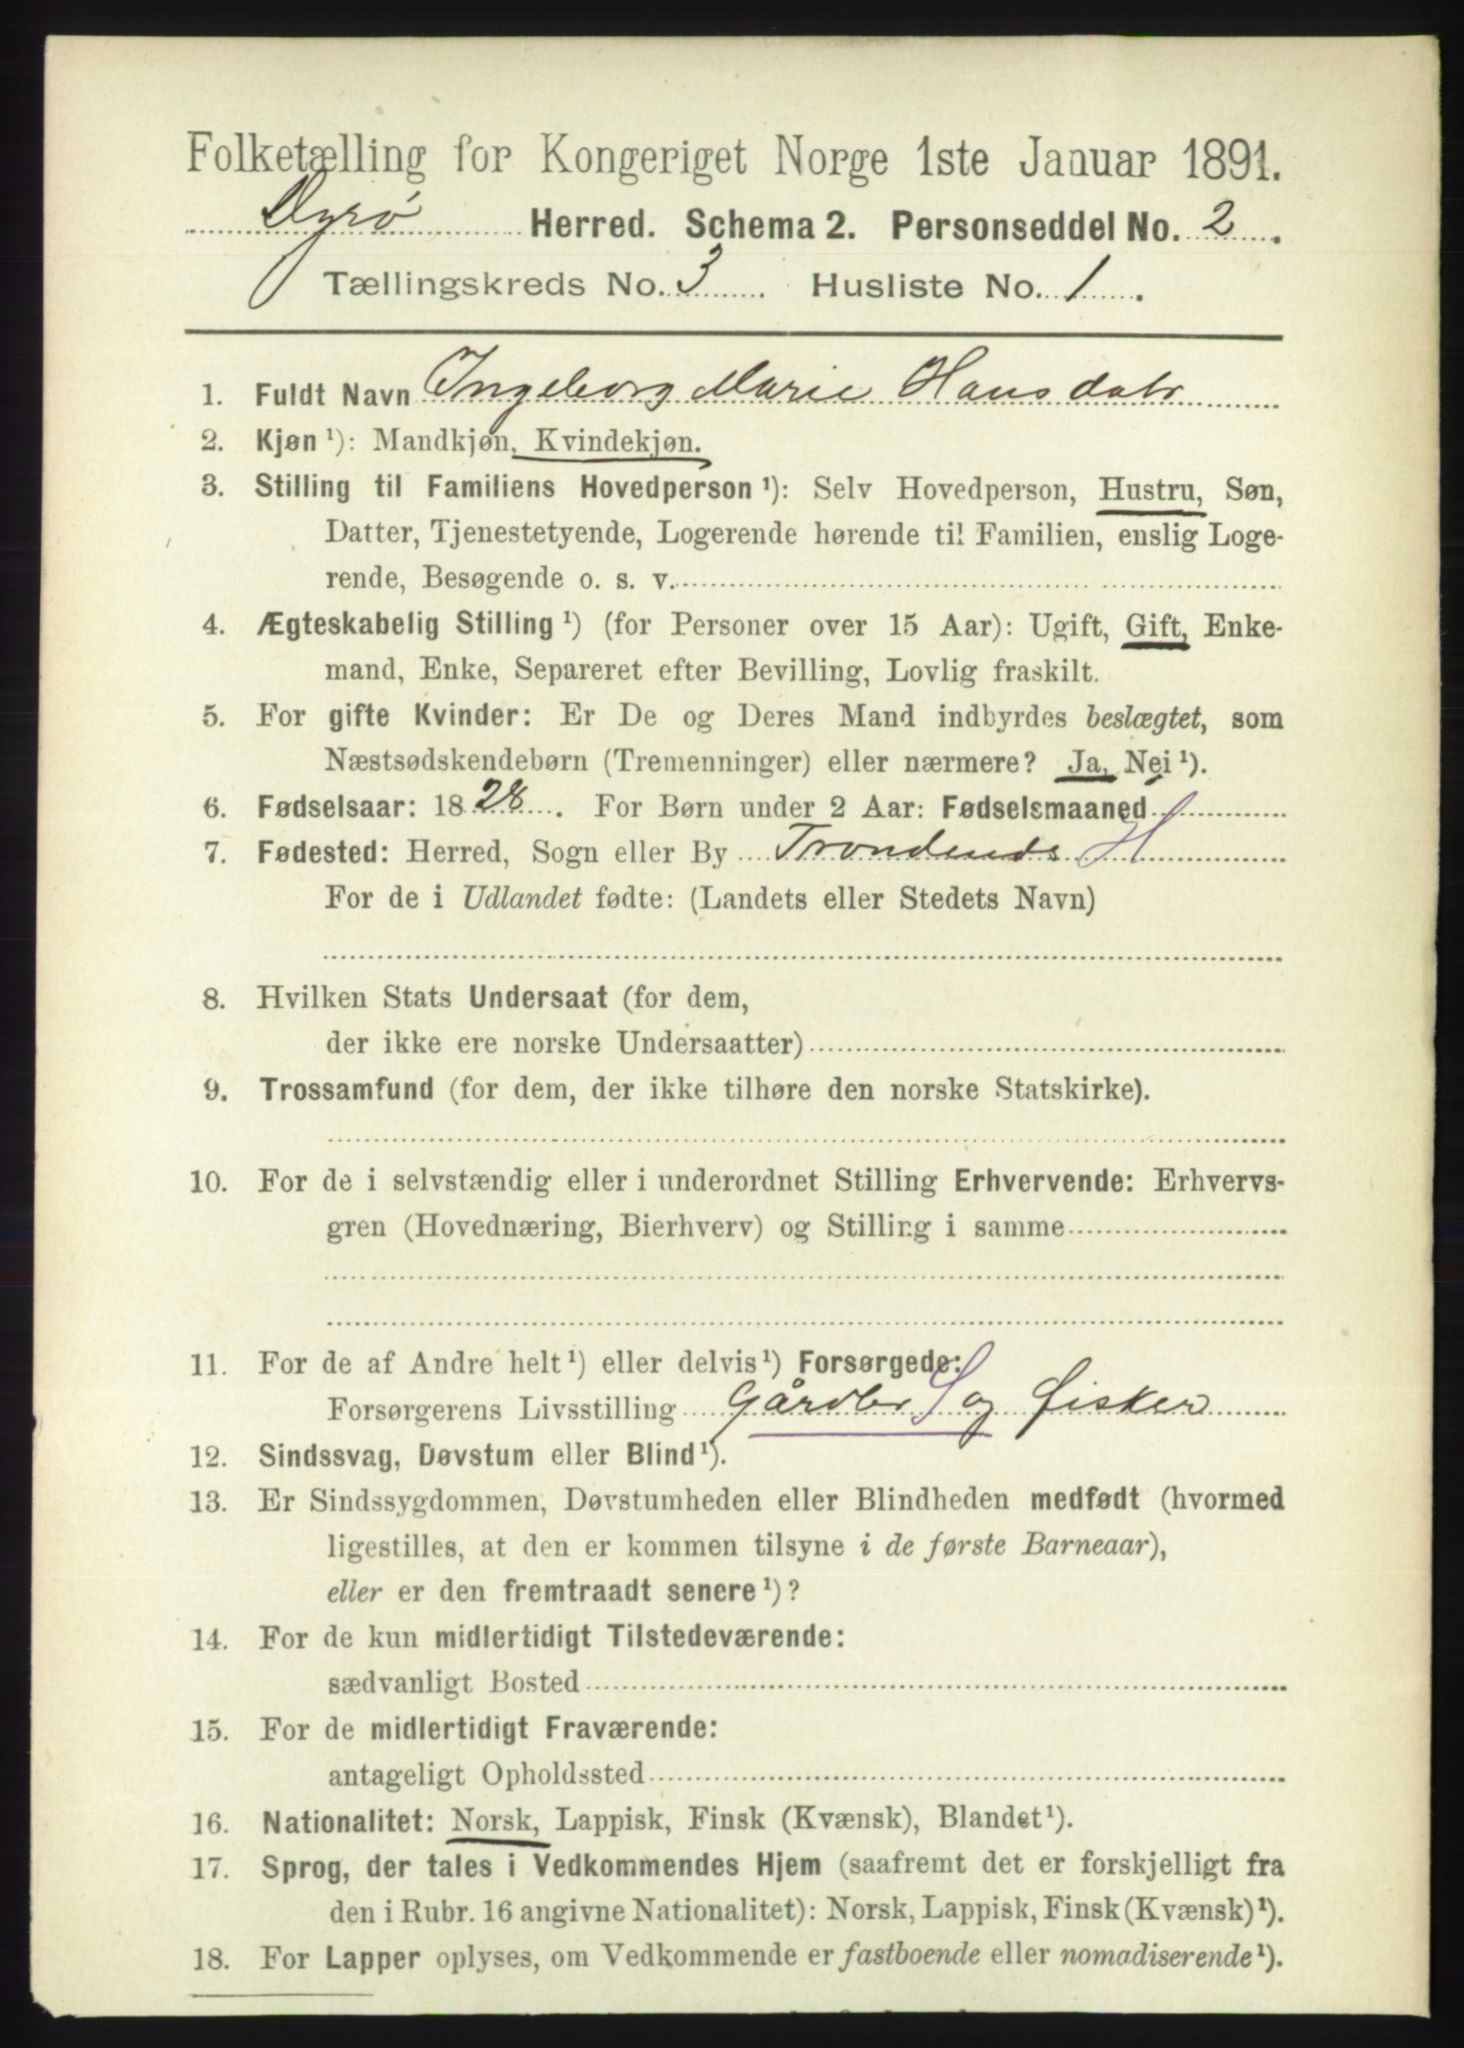 Folketælling for Kongeriget Norge 1ste Januar 1891.
Dyrø Herred. Schema 2. Personseddel No. 2.
Tællingskreds No. 3. Husliste No. 1.
1. Fuldt Navn Ingeborg Marie Hansdatr
2. Kjøn ¹): Mandkjøn, Kvindekjøn.
3. Stilling til Familiens Hovedperson ¹): Selv Hovedperson, Hustru, Søn,
Datter, Tjenestetyende, Logerende hørende til Familien, enslig Loge-
rende, Besøgende o. s. v.
4. Ægteskabelig Stilling ¹) (for Personer over 15 Aar): Ugift, Gift, Enke-
mand, Enke, Separeret efter Bevilling, Lovlig fraskilt.
5. For gifte Kvinder: Er De og Deres Mand indbyrdes beslægtet, som
Næstsødskendebørn (Tremenninger) eller nærmere? Ja, Nei ¹).
6. Fødselsaar: 1828. For Børn under 2 Aar: Fødselsmaaned
7. Fødested: Herred, Sogn eller By Trondenes H
For de i Udlandet fødte: (Landets eller Stedets Navn)
8. Hvilken Stats Undersaat (for dem,
der ikke ere norske Undersaatter)
9. Trossamfund (for dem, der ikke tilhøre den norske Statskirke).
10. For de i selvstændig eller i underordnet Stilling Erhvervende: Erhvervs-
gren (Hovednæring, Bierhverv) og Stilling i samme
11. For de af Andre helt ¹) eller delvis ¹) Forsørgede:
Forsørgerens Livsstilling Gårdbr S og fisker
12. Sindssvag, Døvstum eller Blind ¹).
13. Er Sindssygdommen, Døvstumheden eller Blindheden medfødt (hvormed
ligestilles, at den er kommen tilsyne i de første Barneaar),
eller er den fremtraadt senere ¹)?
14. For de kun midlertidigt Tilstedeværende:
sædvanligt Bosted
15. For de midlertidigt Fraværende:
antageligt Opholdssted
16. Nationalitet: Norsk, Lappisk, Finsk (Kvænsk), Blandet ¹).
17. Sprog, der tales i Vedkommendes Hjem (saafremt det er forskjelligt fra
den i Rubr. 16 angivne Nationalitet): Norsk, Lappisk, Finsk (Kvænsk) ¹).
18. For Lapper oplyses, om Vedkommende er fastboende eller nomadiserende ¹).